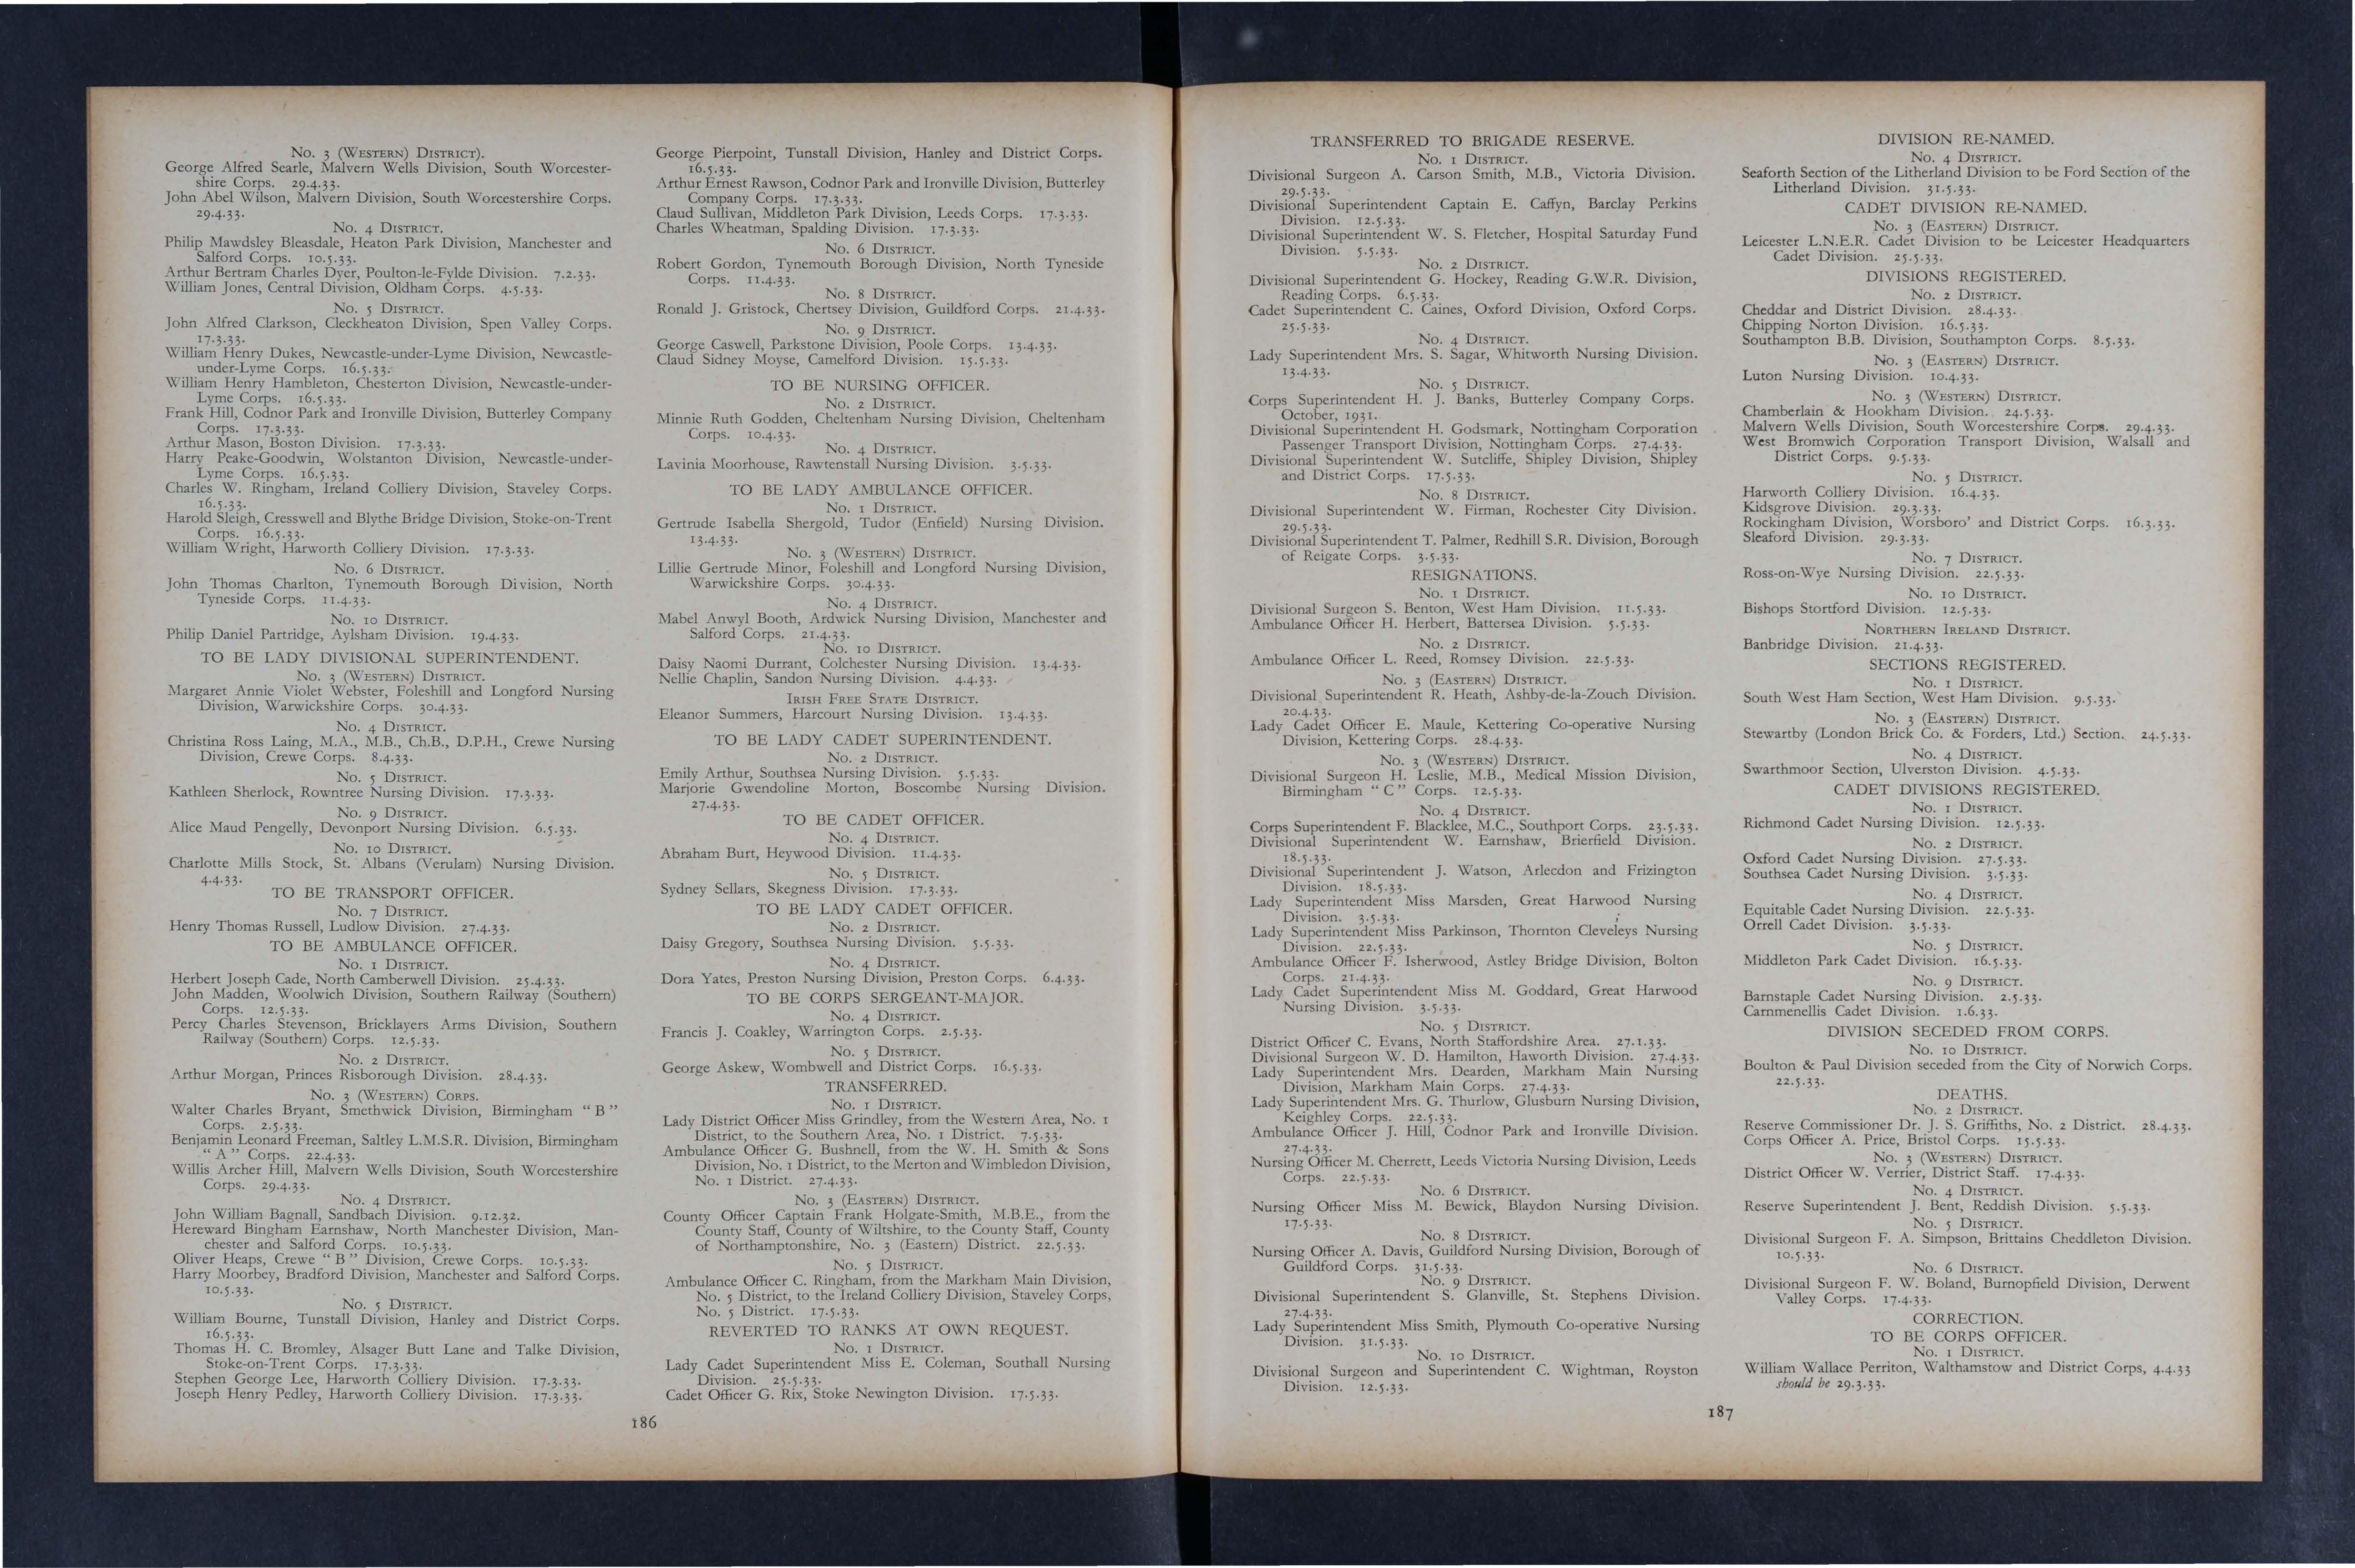 No. 3 (Western) District).
George Alfred Searle, Malvern Wells Division, South Worcester-
shire Corps. 29.4.33.
John Abel Wilson, Malvern Division, South Worcestershire Corps.
29.4.33.
No. 4 District.
Philip Mawdsley Bleasdale, Heaton Park Division, Manchester and
Salford Corps. 10.5.33.
Arthur Bertram Charles Dyer, Poulton-le-Fylde Division. 7.2.33.
William Jones, Central Division, Oldham Corps. 4.5.33.
No. 5 District.
John Alfred Clarkson, Cleckheaton Division, Spen Valley Corps.
17.3.33.
William Henry Dukes, Newcastle-under-Lyme Division, Newcastle-
under-Lyme Corps. 16.5.33.
William Henry Hambleton, Chesterton Division, Newcastle-under-
Lyme Corps. 16.5.33.
Frank Hill, Codnor Park and Ironville Division, Butterley Company
Corps. 17.3.33.
Arthur Mason, Boston Division. 17.3.33.
Harry Peake-Goodwin, Wolstanton Division, Newcastle-under-
Lyme Corps. 16.5.33.
Charles W. Ringham, Ireland Colliery Division, Staveley Corps.
16.5.33.
Harold Sleigh, Cresswell and Blythe Bridge Division, Stoke-on-Trent
Corps. 16.5.33.
William Wright, Harworth Colliery Division. 17.3.33.
No. 6 District.
John Thomas Charlton, Tynemouth Borough Division, North
Tyneside Corps. 11.4.33.
No. 10 District.
Philip Daniel Partridge, Aylsham Division. 19.4.33.
TO BE LADY DIVISIONAL SUPERINTENDENT.
No. 3 (Western) District.
Margaret Annie Violet Webster, Foleshill and Longford Nursing
Division, Warwickshire Corps. 30.4.33.
No. 4 District.
Christina Ross Laing, M.A., M.B., Ch.B., D.P.H., Crewe Nursing
Division, Crewe Corps. 8.4.33.
No. 5 District.
Kathleen Sherlock, Rowntree Nursing Division. 17.3.33.
No. 9 District.
Alice Maud Pengelly, Devonport Nursing Division. 6.5.33.
No. 10 District.
Charlotte Mills Stock, St. Albans (Verulam) Nursing Division.
4.4.33.
TO BE TRANSPORT OFFICER.
No. 7 District.
Henry Thomas Russell, Ludlow Division. 27.4.33.
TO BE AMBULANCE OFFICER.
No. 1 District.
Herbert Joseph Cade, North Camberwell Division. 25.4.33.
John Madden, Woolwich Division, Southern Railway (Southern)
Corps. 12.5.33.
Percy Charles Stevenson, Bricklayers Arms Division, Southern
Railway (Southern) Corps. 12.5.33.
No. 2 District.
Arthur Morgan, Princes Risborough Division. 28.4.33.
No. 3 (Western) Corps.
Walter Charles Bryant, Smethwick Division, Birmingham "B"
Corps. 2.5.33.
Benjamin Leonard Freeman, Saltley L.M.S.R. Division, Birmingham
"A" Corps. 22.4.33.
Willis Archer Hill, Malvern Wells Division, South Worcestershire
Corps. 29.4.33.
No. 4 District.
John William Bagnall, Sandbach Division. 9.12.32.
Hereward Bingham Earnshaw, North Manchester Division, Man-
chester and Salford Corps. 10.5.33.
Oliver Heaps, Crewe "B" Division, Crewe Corps. 10.5.33.
Harry Moorbey, Bradford Division, Manchester and Salford Corps.
10.5.33.
No. 5 District.
William Bourne, Tunstall Division, Hanley and District Corps.
16.5.33.
Thomas H. C. Bromley, Alsager Butt Lane and Talke Division,
Stoke-on-Trent Corps. 17.3.33.
Stephen George Lee, Harworth Colliery Division. 17.3.33.
Joseph Henry Pedley, Harworth Colliery Division. 17.3.33.
George Pierpoint, Tunstall Division, Hanley and District Corps.
16.5.33.
Arthur Ernest Rawson, Codnor Park and Ironville Division, Butterley
Company Corps. 17.3.33.
Claud Sullivan, Middleton Park Division, Leeds Corps. 17.3.33.
Charles Wheatman, Spalding Division. 17.3.33.
No. 6 District.
Robert Gordon, Tynemouth Borough Division, North Tyneside
Corps. 11.4.33.
No. 8 District.
Ronald J. Gristock, Chertsey Division, Guildford Corps. 21.4.33.
No. 9 District.
George Caswell, Parkstone Division, Poole Corps. 13.4.33.
Claud Sidney Moyse, Camelford Division. 15.5.33.
TO BE NURSING OFFICER.
No. 2 District.
Minnie Ruth Godden, Cheltenham Nursing Division, Cheltenham
Corps. 10.4.33.
No. 4 District.
Lavinia Moorhouse, Rawtenstall Nursing Division. 3.5.33.
TO BE LADY AMBULANCE OFFICER.
No. 1 District.
Gertrude Isabella Shergold, Tudor (Enfield) Nursing Division.
13.4.33.
No. 3 (Western) District.
Lillie Gertrude Minor, Foleshill and Longford Nursing Division,
Warwickshire Corps. 30.4.33.
No. 4 District.
Mabel Anwyl Booth, Ardwick Nursing Division, Manchester and
Salford Corps. 21.4.33.
No. 10 District.
Daisy Naomi Durrant, Colchester Nursing Division. 13.4.33.
Nellie Chaplin, Sandon Nursing Division. 4.4.33.
Irish Free State District.
Eleanor Summers, Harcourt Nursing Division. 13.4.33.
TO BE LADY CADET SUPERINTENDENT.
No. 2 District.
Emily Arthur, Southsea Nursing Division. 5.5.33.
Marjorie Gwendoline Morton, Boscombe Nursing Division.
27.4.33.
TO BE CADET OFFICER.
No. 4 District.
Abraham Burt, Heywood Division. 11.4.33.
No. 5 District.
Sydney Sellars, Skegness Division. 17.3.33.
TO BE LADY CADET OFFICER.
No. 2 District.
Daisy Gregory, Southsea Nursing Division. 5.5.33.
No. 4 District.
Dora Yates, Preston Nursing Division, Preston Corps. 6.4.33.
TO BE CORPS SERGEANT-MAJOR.
No. 4 District.
Francis J. Coakley, Warrington Corps. 2.5.33.
No. 5 District.
George Askew, Wombwell and District Corps. 16.5.33.
TRANSFERRED.
No. 1 District.
Lady District Officer Miss Grindley, from the Western Area, No. 1
District, to the Southern Area, No. 1 District. 7.5.33.
Ambulance Officer G. Bushnell, from the W. H. Smith & Sons
Division, No. 1 District, to the Merton and Wimbledon Division,
No. 1 District. 27.4.33.
No. 3 (Eastern) District.
County Officer Captain Frank Holgate-Smith, M.B.E., from the
County Staff, County of Wiltshire, to the County Staff, County
of Northamptonshire, No. 3 (Eastern) District. 22.5.33.
No. 5 District.
Ambulance Officer C. Ringham, from the Markham Main Division,
No. 5 District, to the Ireland Colliery Division, Staveley Corps,
No. 5 District. 17.5.33.
REVERTED TO RANKS AT OWN REQUEST.
No. 1 District.
Lady Cadet Superintendent Miss E. Coleman, Southall Nursing
Division. 25.5.33.
Cadet Officer G. Rix, Stoke Newington Division. 17.5.33.
186
TRANSFERRED TO BRIGADE RESERVE.
No. 1 District.
Divisional Surgeon A. Carson Smith, M.B., Victoria Division.
29.5.33.
Divisional Superintendent Captain E. Caffyn, Barclay Perkins
Division. 12.5.33.
Divisional Superintendent W. S. Fletcher, Hospital Saturday Fund
Division. 5.5.33.
No. 2 District.
Divisional Superintendent G. Hockey, Reading G.W.R. Division,
Reading Corps. 6.5.33.
Cadet Superintendent C. Caines, Oxford Division, Oxford Corps.
25.5.33.
No. 4 District.
Lady Superintendent Mrs. S. Sagar, Whitworth Nursing Division.
13.4.33.
No. 5 District.
Corps Superintendent H. J. Banks, Butterley Company Corps.
October, 1931.
Divisional Superintendent H. Godsmark, Nottingham Corporation
Passenger Transport Division, Nottingham Corps. 27.4.33.
Divisional Superintendent W. Sutcliffe, Shipley Division, Shipley
and District Corps. 17.5.33.
No. 8 District.
Divisional Superintendent W. Firman, Rochester City Division.
29.5.33.
Divisional Superintendent T. Palmer, Redhill S.R. Division, Borough
of Reigate Corps. 3.5.33.
RESIGNATIONS.
No. 1 District.
Divisional Surgeon S. Benton, West Ham Division. 11.5.33.
Ambulance Officer H. Herbert, Battersea Division. 5.5.33.
No. 2 District.
Ambulance Officer L. Reed, Romsey Division. 22.5.33.
No. 3 (Eastern) District.
Divisional Superintendent R. Heath, Ashby-de-la-Zouch Division.
20.4.33.
Lady Cadet Officer E. Maule, Kettering Co-operative Nursing
Division, Kettering Corps. 28.4.33.
No. 3 (Western) District.
Divisional Surgeon H. Leslie, M.B., Medical Mission Division,
Birmingham "C" Corps. 12.5.33.
No. 4 District.
Corps Superintendent F. Blacklee, M.C., Southport Corps. 23.5.33.
Divisional Superintendent W. Earnshaw, Brierfield Division.
18.5.33.
Divisional Superintendent J. Watson, Arlecdon and Frizington
Division. 18.5.33.
Lady Superintendent Miss Marsden, Great Harwood Nursing
Division. 3.5.33.
Lady Superintendent Miss Parkinson, Thornton Cleveleys Nursing
Division. 22.5.33.
Ambulance Officer F. Isherwood, Astley Bridge Division, Bolton
Corps. 21.4.33.
Lady Cadet Superintendent Miss M. Goddard, Great Harwood
Nursing Division. 3.5.33.
No. 5 District.
District Officer C. Evans, North Staffordshire Area. 27.1.33.
Divisional Surgeon W. D. Hamilton, Haworth Division. 27.4.33.
Lady Superintendent Mrs. Dearden, Markham Main Nursing
Division, Markham Main Corps. 27.4.33.
Lady Superintendent Mrs. G. Thurlow, Glusburn Nursing Division,
Keighley Corps. 22.5.33.
Ambulance Officer J. Hill, Codnor Park and Ironville Division.
27.4.33.
Nursing Officer M. Cherrett, Leeds Victoria Nursing Division, Leeds
Corps. 22.5.33.
No. 6 District.
Nursing Officer Miss M. Bewick, Blaydon Nursing Division.
17.5.33.
No. 8 District.
Nursing Officer A. Davis, Guildford Nursing Division, Borough of
Guildford Corps. 31.5.33.
No. 9 District.
Divisional Superintendent S. Glanville, St. Stephens Division.
27.4.33.
Lady Superintendent Miss Smith, Plymouth Co-operative Nursing
Division. 31.5.33.
No. 10 District.
Divisional Surgeon and Superintendent C. Wightman, Royston
Division. 12.5.33.
DIVISION RE-NAMED.
No. 4 District.
Seaforth Section of the Litherland Division to be Ford Section of the
Litherland Division. 31.5.33.
CADET DIVISION RE-NAMED.
No. 3 (Eastern) District.
Leicester L.N.E.R. Cadet Division to be Leicester Headquarters
Cadet Division. 25.5.33.
DIVISIONS REGISTERED.
No. 2 District.
Cheddar and District Division. 28.4.33.
Chipping Norton Division. 16.5.33.
Southampton B.B. Division, Southampton Corps. 8.5.33.
No. 3 (Eastern) District.
Luton Nursing Division. 10.4.33.
No. 3 (Western) District.
Chamberlain & Hookham Division. 24.5.33.
Malvern Wells Division, South Worcestershire Corps. 29.4.33.
West Bromwich Corporation Transport Division, Walsall and
District Corps. 9.5.33.
No. 5 District.
Harworth Colliery Division. 16.4.33.
Kidsgrove Division. 29.3.33.
Rockingham Division, Worsboro' and District Corps. 16.3.33.
Sleaford Division. 29.3.33.
No. 7 District.
Ross-on-Wye Nursing Division. 22.5.33.
No. 10 District.
Bishops Stortford Division. 12.5.33.
Northern Ireland District.
Banbridge Division. 21.4.33.
SECTIONS REGISTERED.
No. 1 District.
South West Ham Section, West Ham Division. 9.5.33.
No. 3 (Eastern) District.
Stewartby (London Brick Co. & Forders, Ltd.) Section. 24.5.33.
No. 4 District.
Swarthmoor Section, Ulverston Division. 4.5.33.
CADET DIVISIONS REGISTERED.
No. 1 District.
Richmond Cadet Nursing Division. 12.5.33.
No. 2 District.
Oxford Cadet Nursing Division. 27.5.33.
Southsea Cadet Nursing Division. 3.5.33.
No. 4 District.
Equitable Cadet Nursing Division. 22.5.33.
Orrell Cadet Division. 3.5.33.
No. 5 District.
Middleton Park Cadet Division. 16.5.33.
No. 9 District.
Barnstaple Cadet Nursing Division. 2.5.33.
Carnmenellis Cadet Division. 1.6.33.
DIVISION SECEDED FROM CORPS.
No. 10 District.
Boulton & Paul Division seceded from the City of Norwich Corps.
22.5.33.
DEATHS.
No. 2 District.
Reserve Commissioner Dr. J. S. Griffiths, No. 2 District. 28.4.33.
Corps Officer A. Price, Bristol Corps. 15.5.33.
No. 3 (Western) District.
District Officer W. Verrier, District Staff. 17.4.33.
No. 4 District.
Reserve Superintendent J. Bent, Reddish Division. 5.5.33.
No. 5 District.
Divisional Surgeon F. A. Simpson, Brittains Cheddleton Division.
10.5.33.
No. 6 District.
Divisional Surgeon F. W. Boland, Burnopfield Division, Derwent
Valley Corps. 17.4.33.
CORRECTION.
TO BE CORPS OFFICER.
No. 1 District.
William Wallace Perriton, Walthamstow and District Corps, 4.4.33
should be 29.3.33.
187